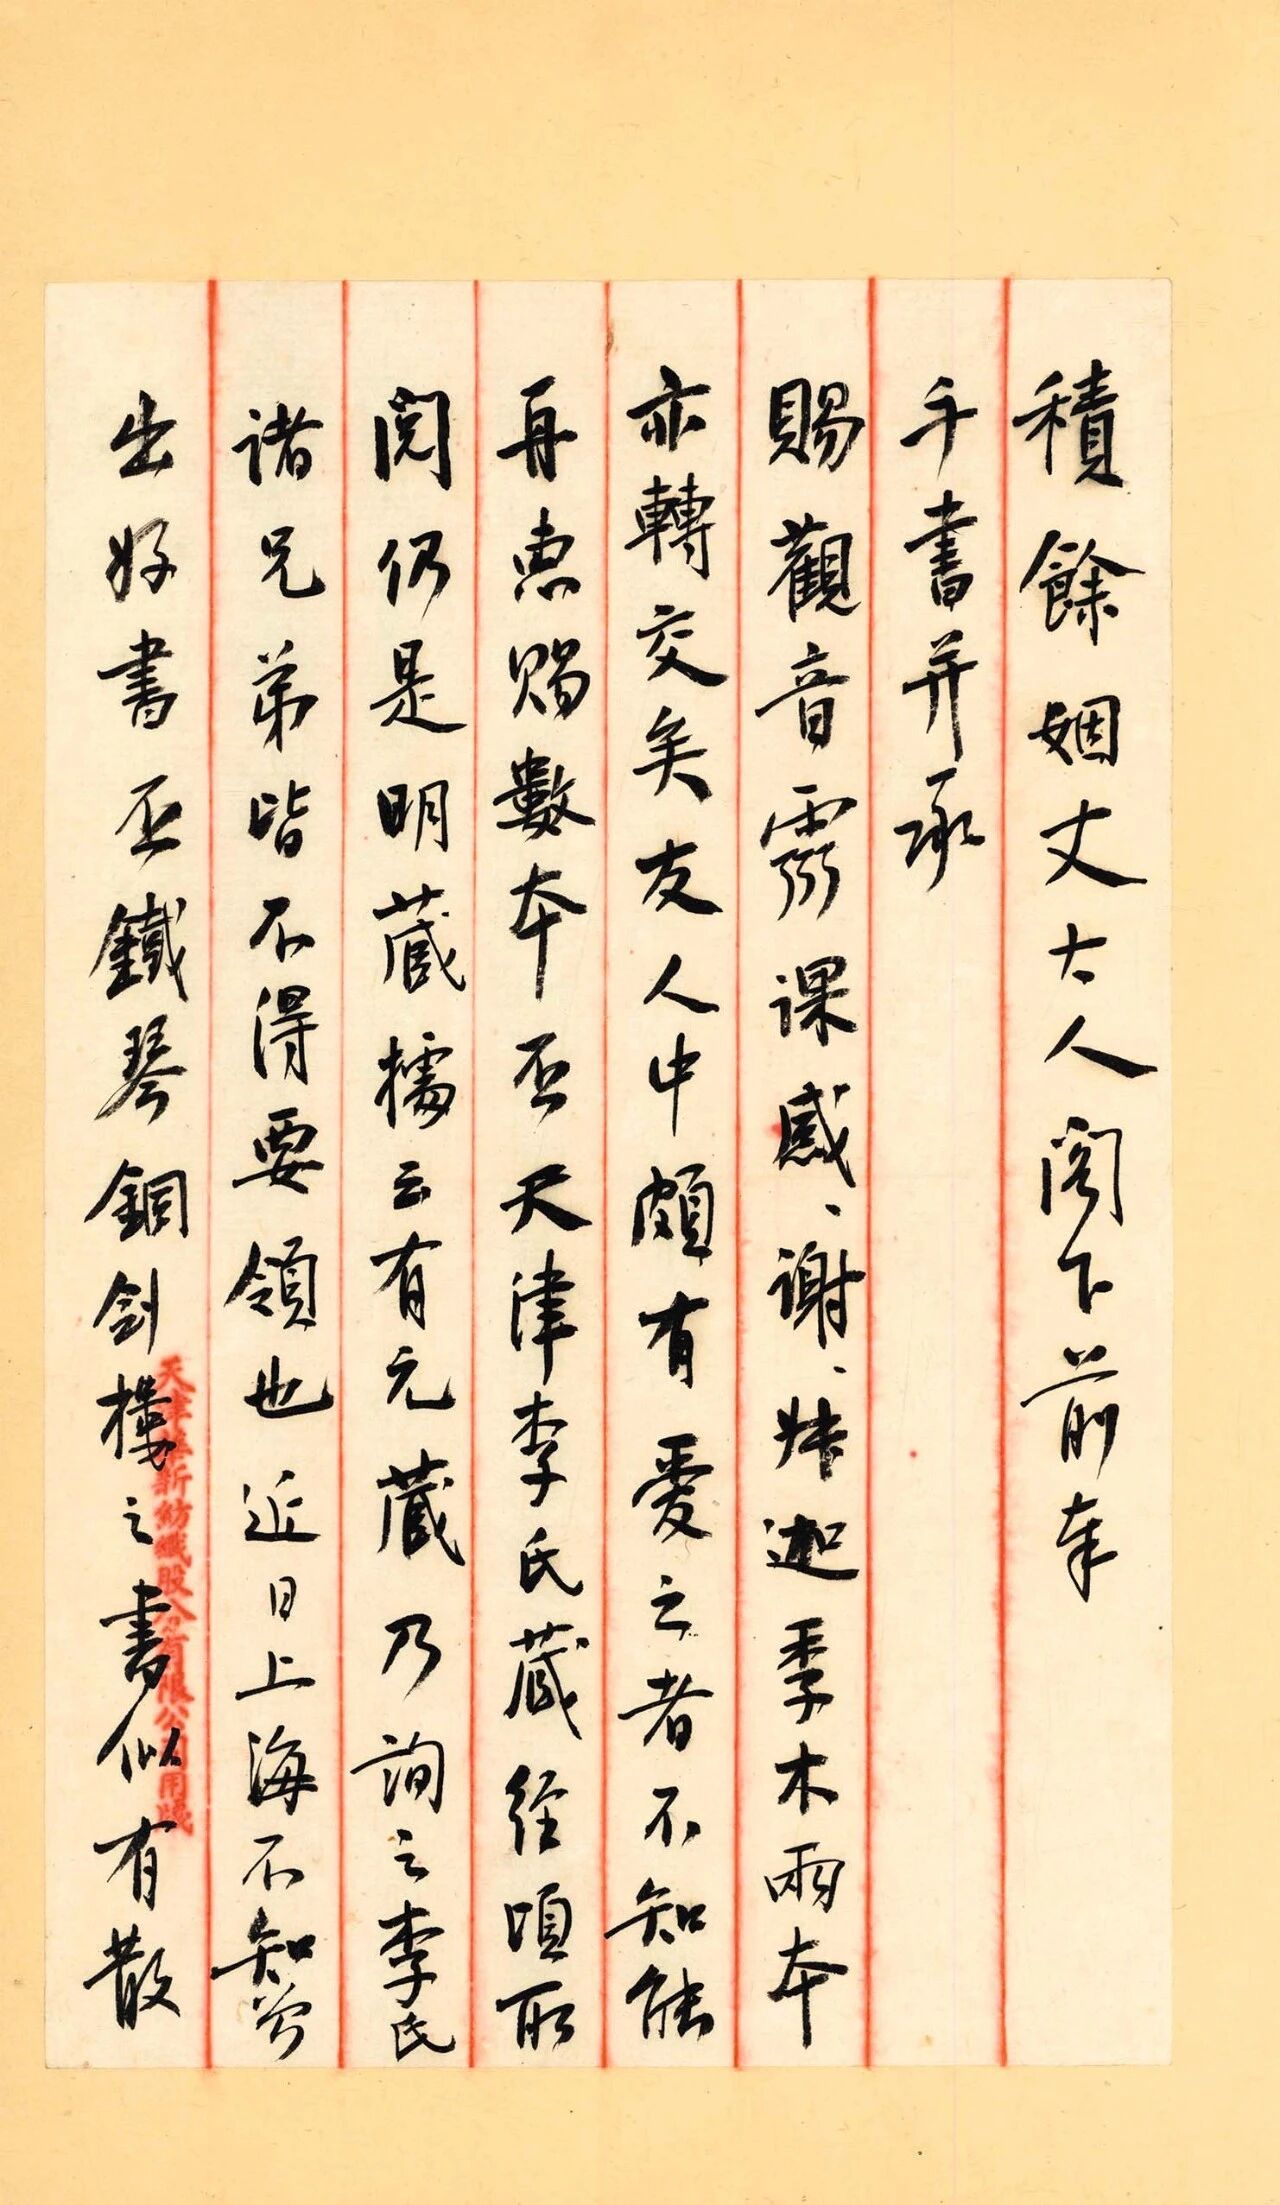 積餘姻丈大人閣下前奉
手書并承
賜觀音靈課感、謝、妹迦季木兩本
亦轉交矣友人中頗有愛之者不知能
再惠賜數本否天津李氏藏經頃取
閱仍是明藏據云有元藏乃詢之李氏
諸兄弟皆不得要領也近日上海不知曾
出好書否鐵琴銅劍樓之書似有散
天津華新紡織股份有限公司用牋